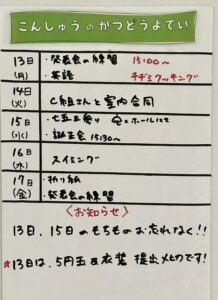 こんしゅうのかつどうよてい
13日(月) ・発表会の練習 15:00〜
・英語 チヂミクッキング
14日(火) C組さんと室内合同
15日(水) ・七五三参り @ホールにて
・誕生会 15:30〜
16日(木) スイミング
17日(金) ・折り紙
・発表会の練習
〈お知らせ〉
13日、15日のもちものお忘れなく!!
13日は、5円玉&衣装 提出〆切です!